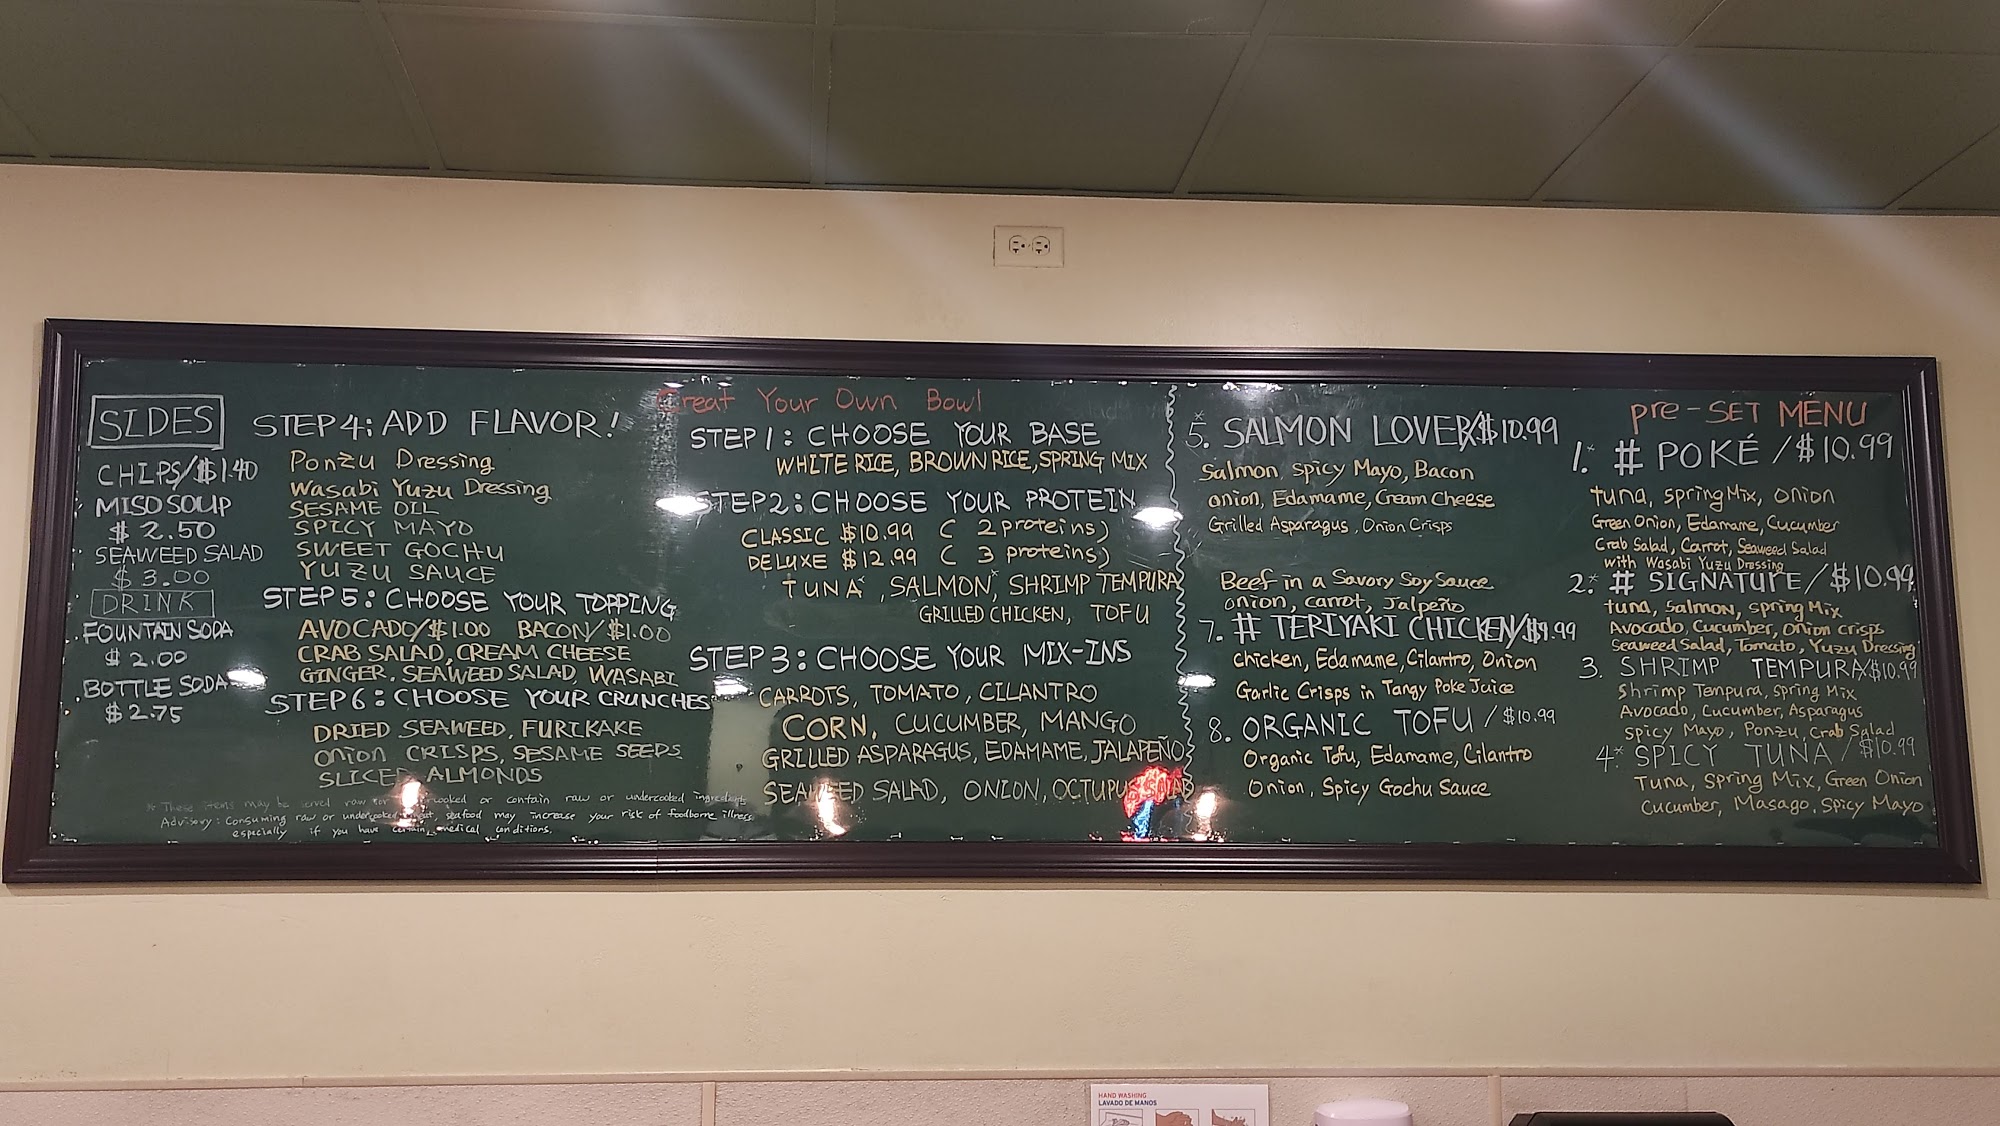 SIDES
CHIPS/$1.40
MISO SOUP
$2.50
SEAWEED SALAD
$3.00
DRINK
FOUNTAIN SODA
$2.00
BOTTLE SODA
$2.75
STEP4: ADD FLAVOR!
Ponzu Dressing
Wasabi Yuzu Dressing
SESAME OIL
SPICY MAYO
SWEET GOCHU
YUZU SAUCE
STEP5: CHOOSE YOUR TOPPING
AVOCADO/$1.00 BACON/$1.00
CRAB SALAD, CREAM CHEESE
GINGER, SEAWEED SALAD, WASABI
STEP6: CHOOSE YOUR CRUNCHES
DRIED SEAWEED, FURIKAKE
Onion CRISPS, SESAME SEEDS
SLICED ALMONDS
* These items may be served raw or cooked or contain raw or undercooked ingredients
Advisory: Consuming raw or undercooked seafood may increase your risk of foodborne illness
especially if you have certain medical conditions.
Creat Your Own Bowl
STEP1: CHOOSE YOUR BASE
WHITE RICE, BROWN RICE, SPRING MIX
STEP2: CHOOSE YOUR PROTEIN
CLASSIC $10.99 (2 proteins)
DELUXE $12.99 (3 proteins)
TUNA*, SALMON*, SHRIMP TEMPURA
GRILLED CHICKEN, TOFU
STEP3: CHOOSE YOUR MIX-INS
CARROTS, TOMATO, CILANTRO
CORN, CUCUMBER, MANGO
GRILLED ASPARAGUS, EDAMAME, JALAPEÑO
SEAWEED SALAD, ONION, OCTUPUS
5.* SALMON LOVER/$10.99
Salmon, Spicy Mayo, Bacon
Onion, Edamame, Cream Cheese
Grilled Asparagus, Onion Crisps
Beef in a Savory Soy Sauce
Onion, Carrot, Jalpeño
7. # TERIYAKI CHICKEN/$9.99
Chicken, Edamame, Cilantro, Onion
Garlic Crisps in Tangy Poke Juice
8. ORGANIC TOFU/$10.99
Organic Tofu, Edamame, Cilantro
Onion, Spicy Gochu Sauce
Pre-SET MENU
1.* # POKÉ/$10.99
Tuna, Spring Mix, Onion
Green Onion, Edamame, Cucumber
Crab Salad, Carrot, Seaweed Salad
with Wasabi Yuzu Dressing
2.* # SIGNATURE/$10.99
Tuna, Salmon, Spring Mix
Avocado, Cucumber, Onion Crisps
Seaweed Salad, Tomato, Yuzu Dressing
3. SHRIMP TEMPURA/$10.99
Shrimp Tempura, Spring Mix
Avocado, Cucumber, Asparagus
Spicy Mayo, Ponzu, Crab Salad
4.* SPICY TUNA/$10.99
Tuna, Spring Mix, Green Onion
Cucumber, Masago, Spicy Mayo
HAND WASHING
LAVADO DE MANOS